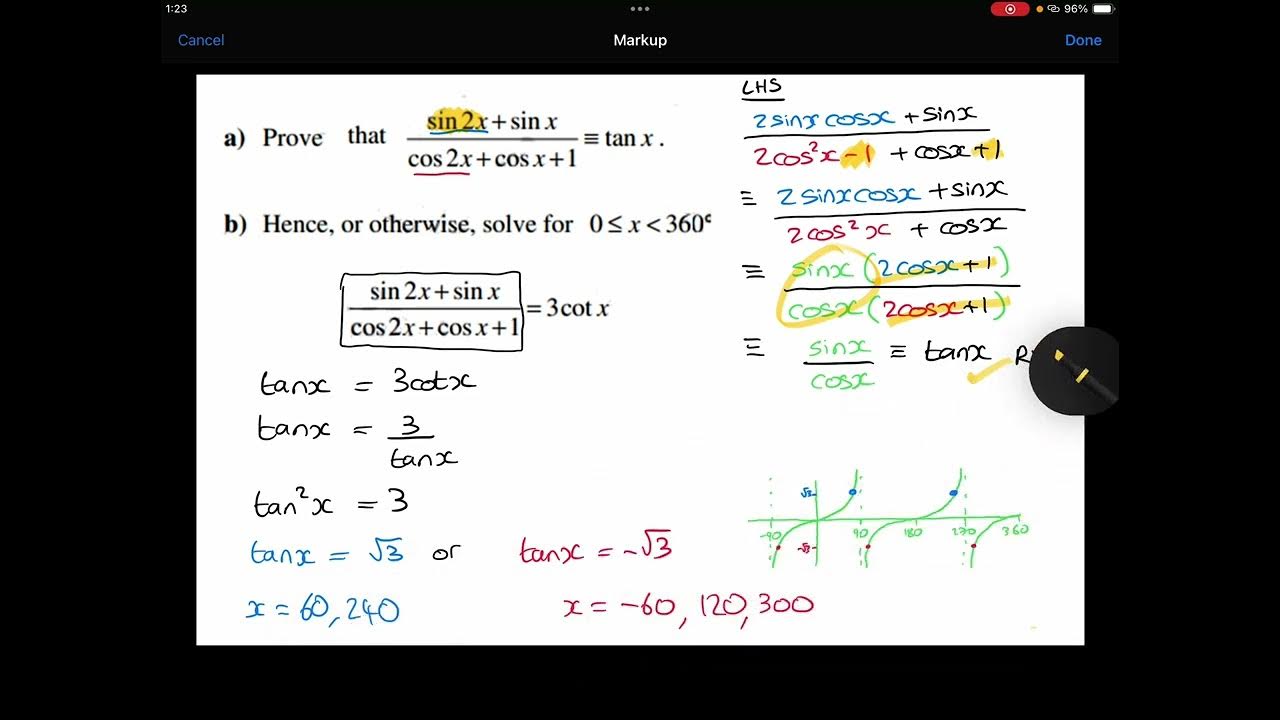 1:23
96%
Cancel
Markup
Done
a) Prove that (sin 2x + sin x)/(cos 2x + cos x + 1) ≡ tan x.
b) Hence, or otherwise, solve for 0 ≤ x < 360°
(sin 2x + sin x)/(cos 2x + cos x + 1) = 3cot x
tanx = 3cotx
tanx = 3/tanx
tan²x = 3
tanx = √3 or tanx = -√3
x = 60, 240
x = -60, 120, 300
LHS
(2sinxcosx + sinx)/(2cos²x - 1 + cosx + 1)
≡ (2sinxcosx + sinx)/(2cos²x + cosx)
≡ (sinx(2cosx + 1))/(cosx(2cosx + 1))
≡ sinx/cosx ≡ tanx
√3
-90 90 180 270 360
-√3